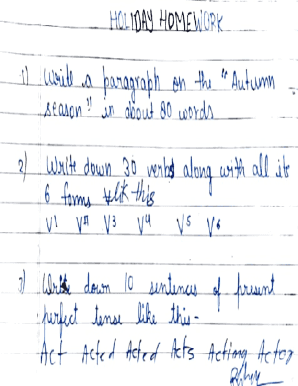 HOLIDAY HOMEWORK
1) Write a paragraph on the "Autumn
season" in about 80 words
2) Write down 30 verbs along with all its
6 forms like this
V1 V2 V3 V4 V5 V6
3) Write down 10 sentences of present
perfect tense like this -
Act Acted Acted Acts Acting Actor